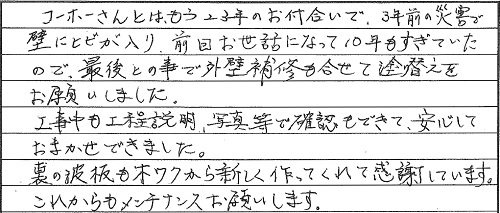 コーホーさんとは、もう23年のお付合いで、3年前の災害で
壁にヒビが入り、前回お世話になって10年もすぎていた
ので、最後との事で外壁補修も合せて塗替えを
お願いしました。
工事中も工程説明、写真等で確認もできて、安心して
おまかせできました。
裏の波板も木ワクから新しく作ってくれて感謝しています。
これからもメンテナンスお願いします。